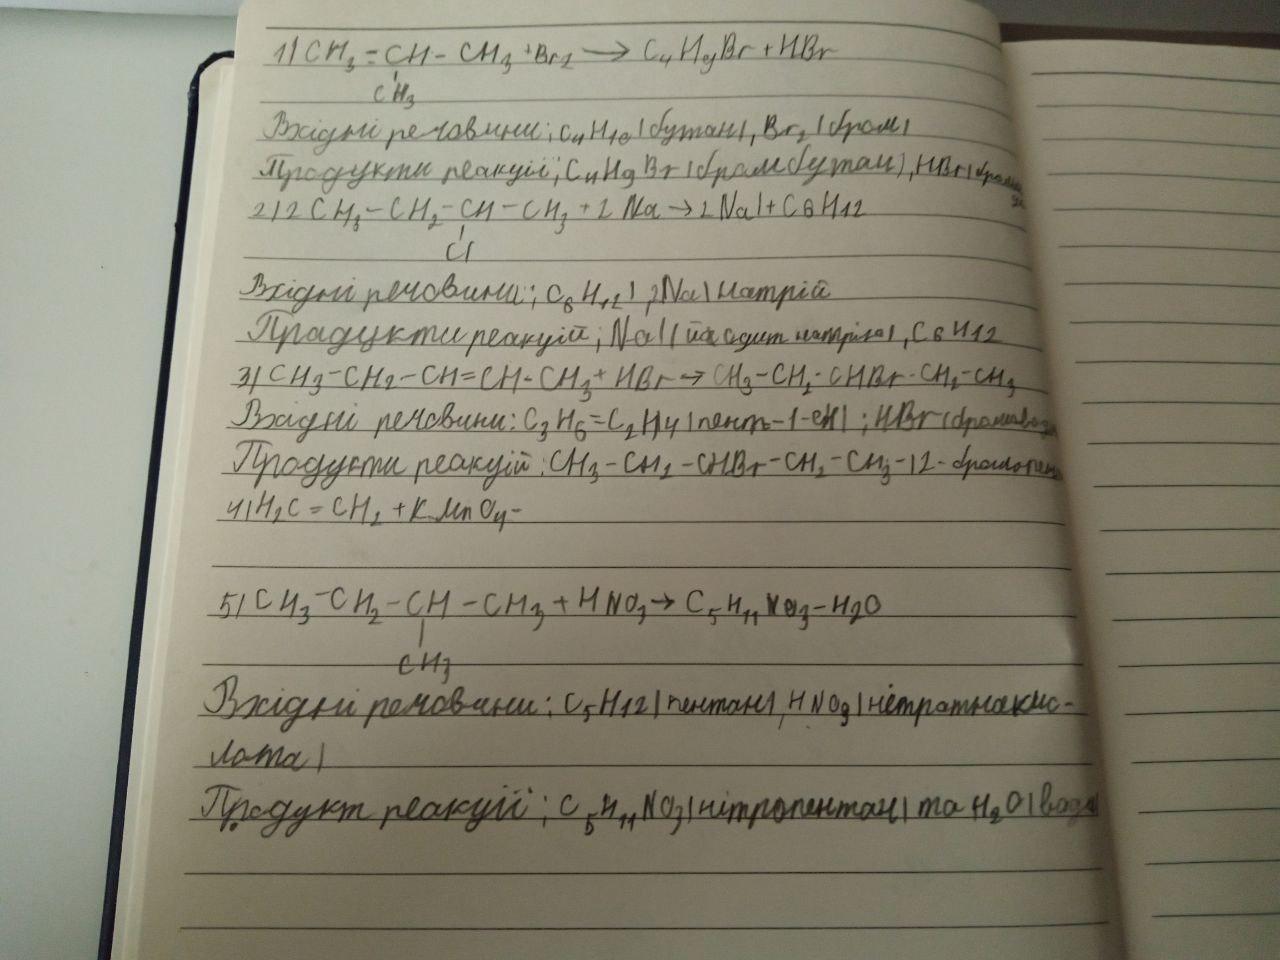 1) CH₃=CH-CH₃+Br₂→C₄H₉Br+HBr
CH₃
Вхідні речовини; C₄H₁₀(бутан), Br₂(бром)
Продукти реакції; C₄H₉Br(бромбутан), HBr
2) 2CH₃-CH₂-CH-CH₃+2Na→2NaI+C8H12
Cl
Вхідні речовини; C₈H₁₂), 2Na)натрій
Продукти реакцій; NaI(йодит натрію), C8H12
3) CH₃-CH₂-CH=CH-CH₃+HBr→CH₃-CH₂-CHBr-CH₂-CH₃
Вхідні речовини: C₃H₆=C₂H4(пент-1-ен); HBr
Продукти реакцій: CH₃-CH₂-CHBr-CH₂-CH₃-(2-
4) H₂C=CH₂+KMnO₄-
5) CH₃-CH₂-CH-CH₃+HNO₃→C₅H₁₁NO₃-H₂O
CH₃
Вхідні речовини; C₅H12(пентан), HNO₃(нітратнакис-
лота)
Продукт реакції; C₅H₁₁NO₃(нітропентан) та H₂O(вода)